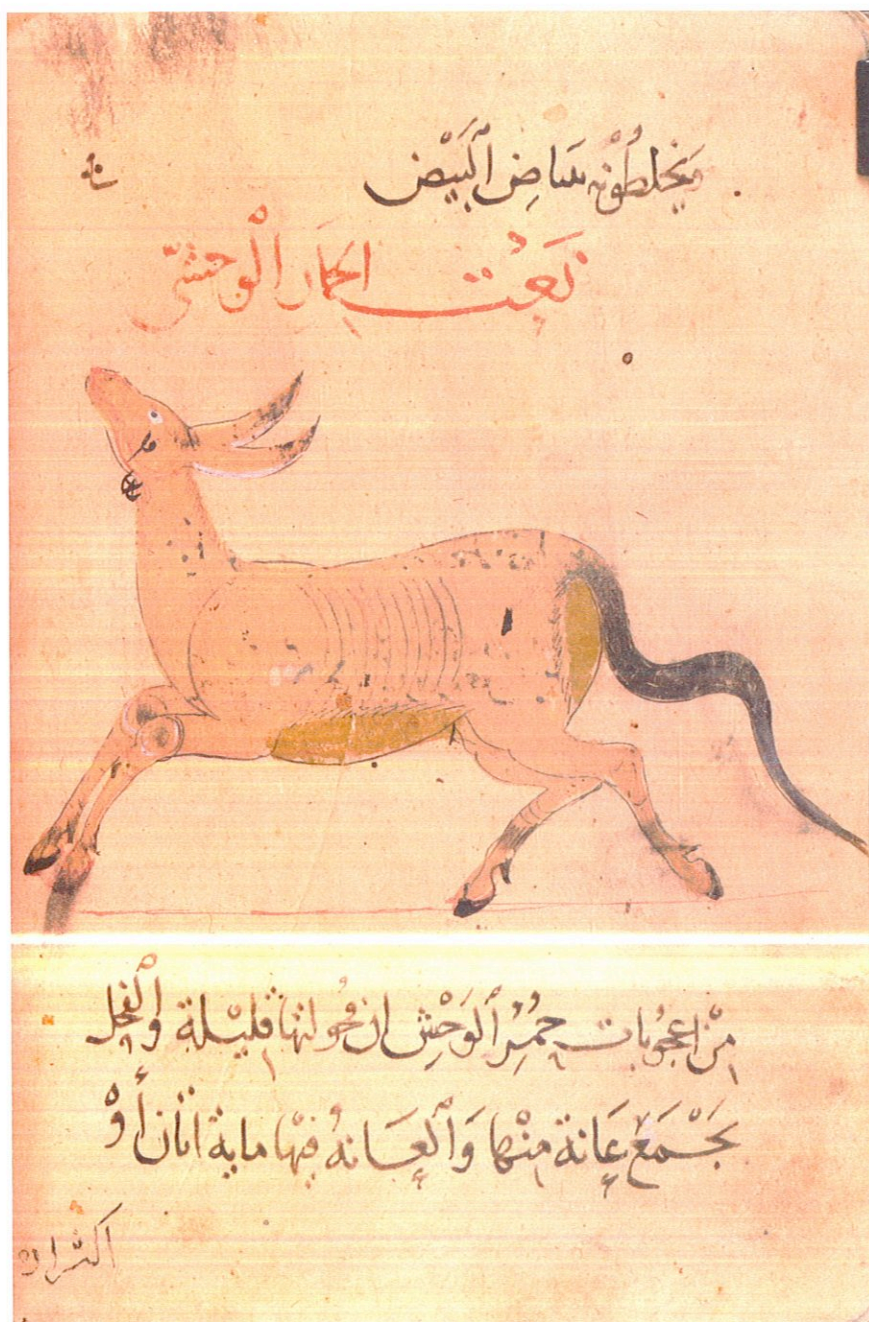 ويخلطونه ببياض البَيْض
نَعْت الحِمَار الْوَحشيّ
مِنْ اعجوبات حُمُر الوَحْش ان فحُولتها قليْلة والْفحل
يَجْمَع عَانة مِنْها وَالعَانةُ فِيْها ماية اتان أوْ
اكثر ان